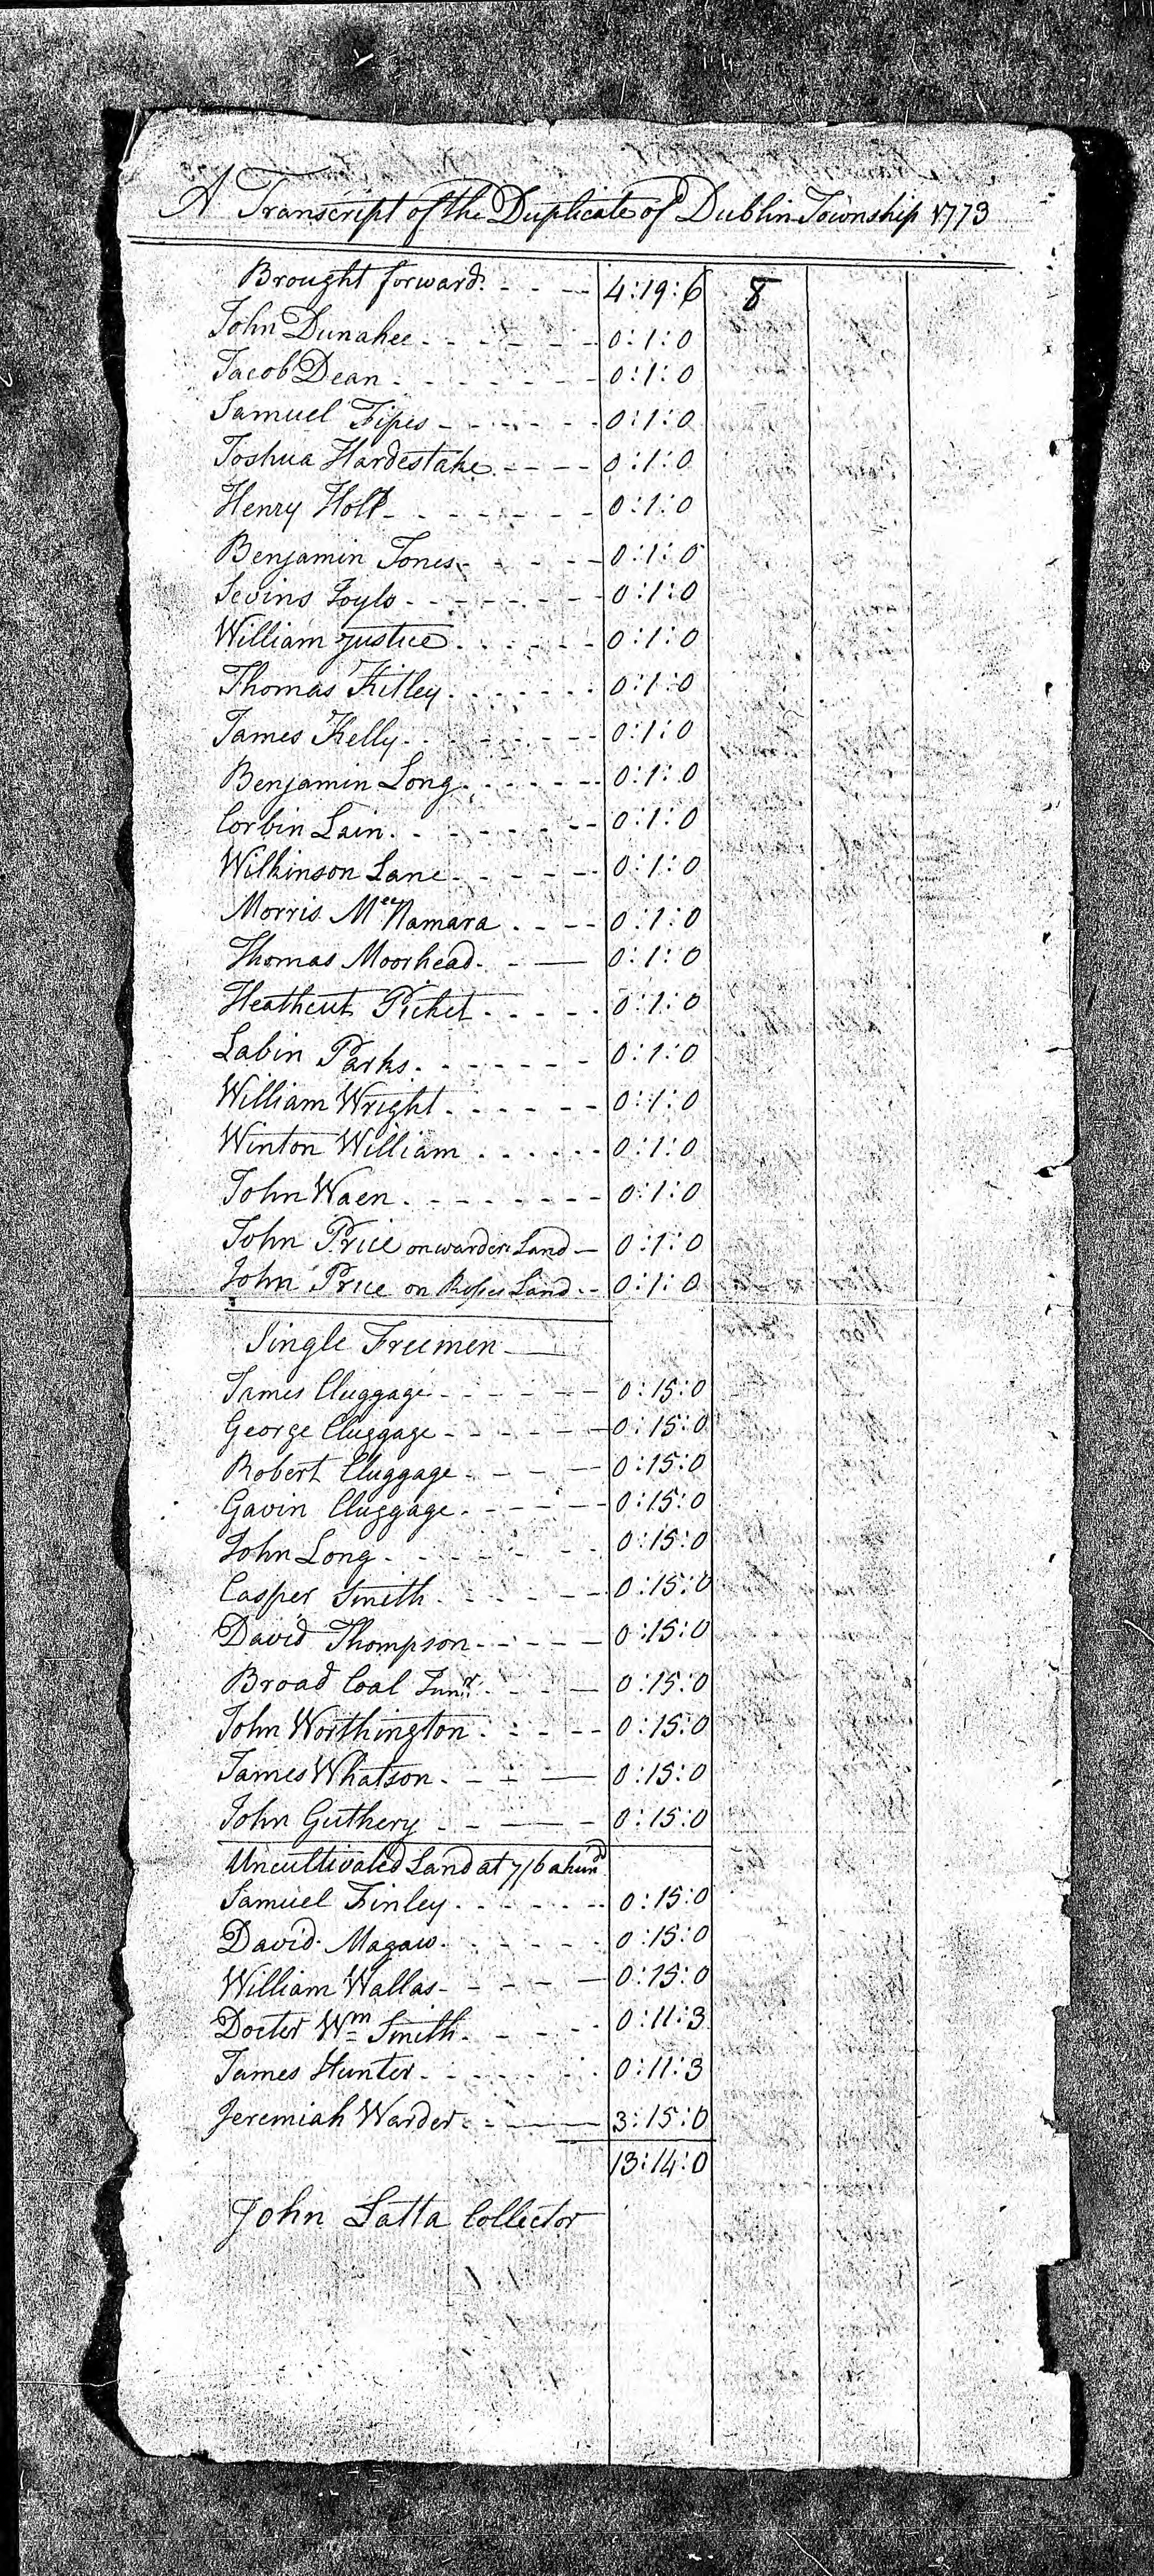 A Transcript of the Duplicate of Dublin Township 1773
Brought forward 4:19:6 8
John Dunahee 0:1:0
Jacob Dean 0:1:0
Samuel Fipes 0:1:0
Joshua Hardestake 0:1:0
Henry Holt 0:1:0
Benjamin Jones 0:1:0
Sevins Joylo 0:1:0
William Justice 0:1:0
Thomas Kitley 0:1:0
James Kelly 0:1:0
Benjamin Long 0:1:0
Corbin Lain 0:1:0
Wilkinson Lane 0:1:0
Morris Mcc Namara 0:1:0
Thomas Moorhead 0:1:0
Heathcut Picket 0:1:0
Labin Parks 0:1:0
William Wright 0:1:0
Winton William 0:1:0
John Waen 0:1:0
John Price on warders Land 0:1:0
John Price on Land 0:1:0
Single Freemen
James Cluggage 0:15:0
George Cluggage 0:15:0
Robert Cluggage 0:15:0
Gavin Cluggage 0:15:0
John Long 0:15:0
Casper Smith 0:15:0
David Thompson 0:15:0
Broad Coal Junr 0:15:0
John Worthington 0:15:0
James Whatson 0:15:0
John Guthery 0:15:0
Uncultivated Land at 7/6 a hund
Samuel Finley 0:15:0
David Magaw 0:15:0
William Wallas 0:15:0
Docter Wm Smith 0:11:3
James Hunter 0:11:3
Jeremiah Warder 3:15:0
13:14:0
John Latta Collector